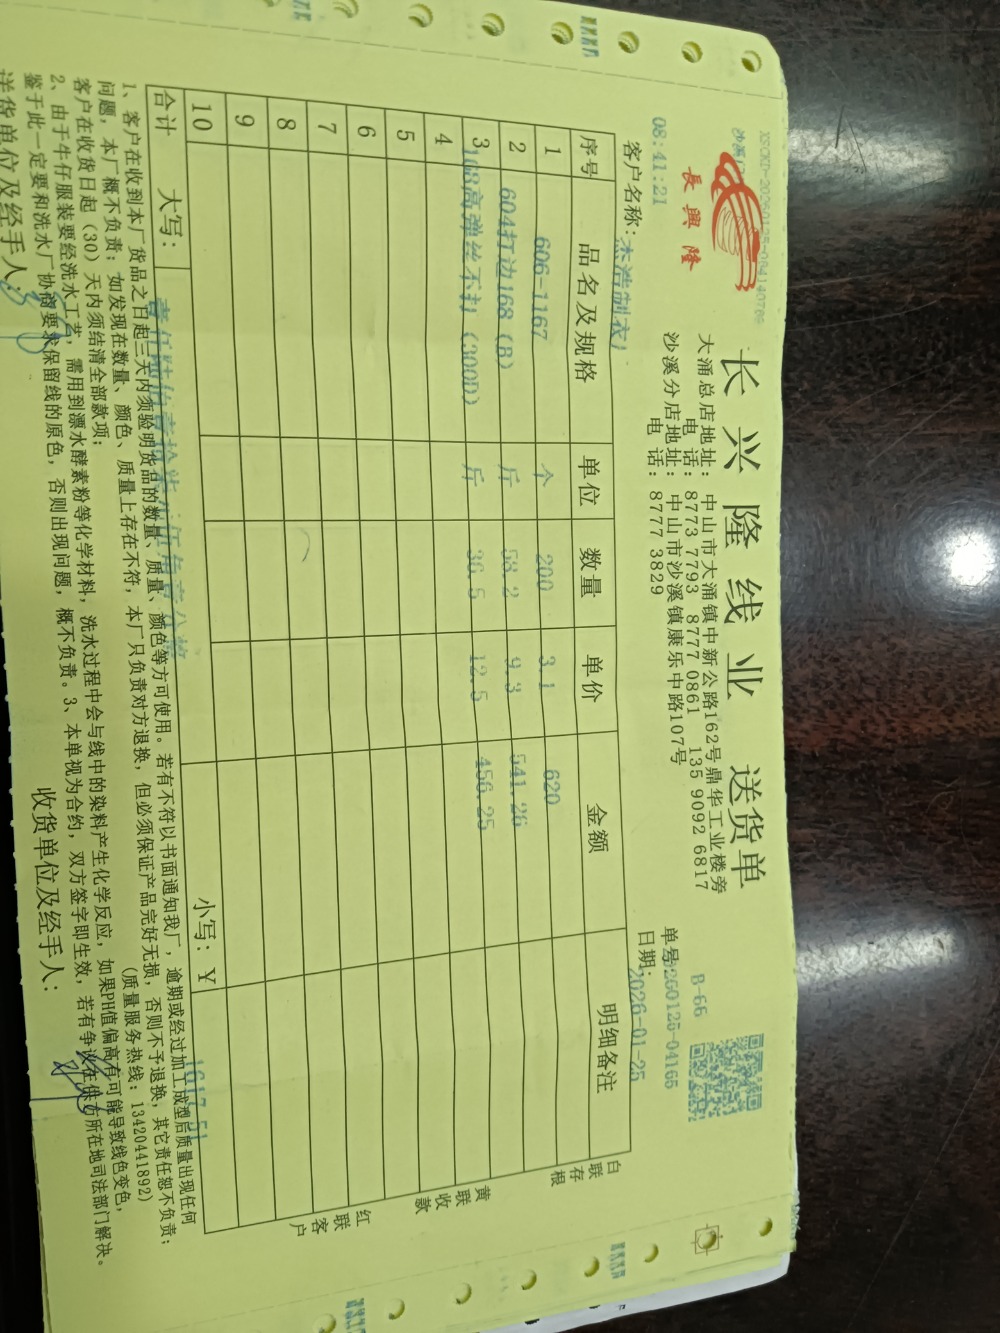 長興隆
长兴隆线业 送货单
大涌总店地址: 中山市大涌镇中新公路162号鼎华工业楼旁
电 话: 8773 7793 8777 0861 135 9092 6817
沙溪分店地址: 中山市沙溪镇康乐中路107号
电 话: 8777 3829
B-66
08:41:21
单号: 260125-04165
客户名称: 杰浩制衣
日期: 2026-01-25
序号 品名及规格 单位 数量 单价 金额 明细备注
1 606-1167 个 200 3.1 620
2 604打边168 (B) 斤 58.2 9.3 541.26
3 168高弹丝不打 (300D) 斤 36.5 12.5 456.25
4
5
6
7
8
9
10
合计 大写: 小写: ￥ 1617.51
白联存根
黄联收款
红联客户
1、客户在收到本厂货品之日起三天内须验明货品的数量、质量、颜色等方可使用。若有不符以书面通知我厂，逾期或经过加工成型后质量出现任何
问题，本厂概不负责；如发现在数量、颜色、质量上存在不符，本厂只负责对方退换，但必须保证产品完好无损，否则不予退换，其它责任恕不负责；
客户在收货日起（30）天内须结清全部款项； (质量服务热线: 13420441892)
2、由于牛仔服装要经洗水工艺，需用到漂水酵素粉等化学材料，洗水过程中会与线中的染料产生化学反应，如果PH值偏高有可能导致线色变色，
鉴于此一定要和洗水厂协商要求保留线的原色，否则出现问题，概不负责。3、本单视为合约，双方签字即生效，若有争议在供方所在地司法部门解决。
送货单位及经手人: 收货单位及经手人: